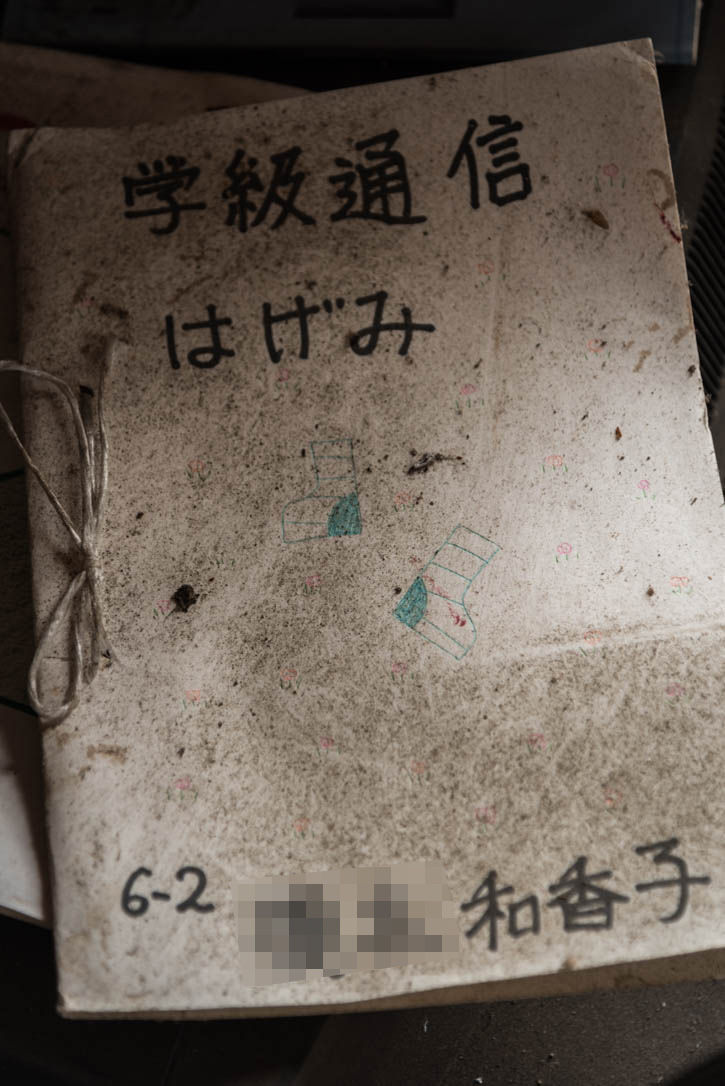 学級通信
はげみ
6-2 和香子